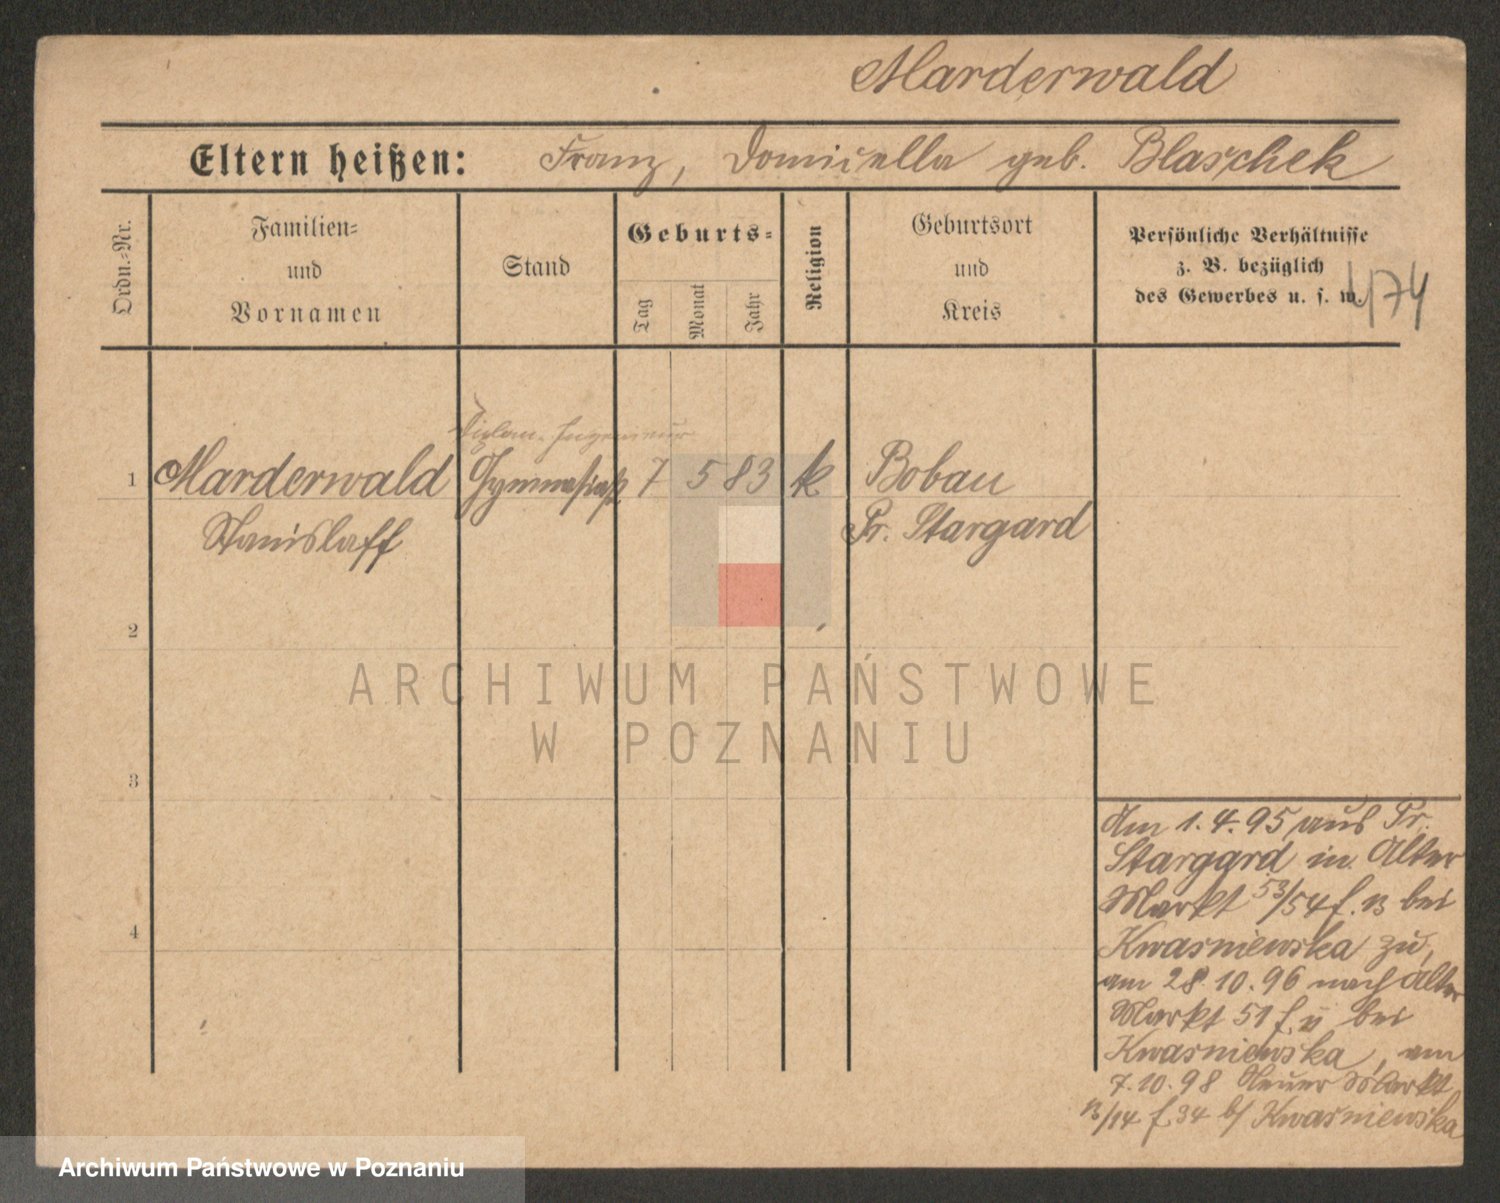 Marderwald
Eltern heißen: Franz, Domicella geb. Blaschek
Ordn.-Nr.
Familien-
und
Vornamen
Stand
Geburts-
Tag
Monat
Jahr
Religion
Geburtsort
und
Kreis
Persönliche Verhältnisse
z. B. bezüglich
des Gewerbes u. s. w.
474
Diplom-Ingenieur
1 Marderwald Gymnasiast 7 5 83 k Bobau
Stanislaff Pr. Stargard
2
3
4
Am 1.4.95 aus Pr.
Stargard in Alter
Markt 53/54 f. 13 bei
Kwasniewska zu,
am 28.10.96 nach Alter
Markt 51 f. bei
Kwasniewska, am
7.10.98 Neuer Markt
13/14 f. 34 b/ Kwasniewska
ARCHIWUM PAŃSTWOWE
W POZNANIU
Archiwum Państwowe w Poznaniu